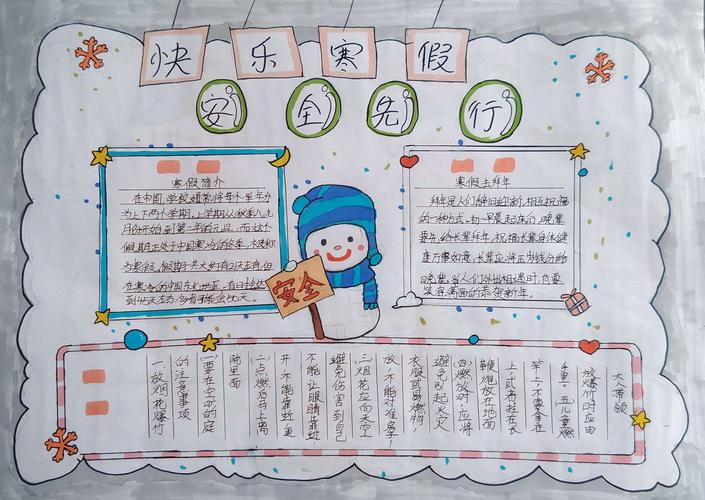 快乐寒假
安全先行
寒假简介
在中国,学校通常将每个学年分
为上下两个学期。上学期从秋季八九
月份开始到第二年的元旦。而这个
假期正处于中国寒冷的冬季,大家称
为寒假。假期大约有
在寒冷的中国东北地区,有时会达
到
寒假去拜年
拜年是人们辞旧迎新,相互祝福
的一种方式。初一早晨起床后,晚辈
要先给长辈拜年,祝福长辈身体健
康万事如意,长辈应将压岁钱分给
晚辈。当人们外出相遇时,也要
笑容满面的恭贺新年。
安全
一放烟花爆竹
的注意事项
(一)要在空旷的庭
院里面
(二)点燃后马上离
开,不能靠近,更
不能让眼睛靠近,
避免伤害到自己
(三)烟花应向天空
放,不能对准房子,
衣服或易燃物,
避免引起火灾
(四)燃放时应将
鞭炮放在地面
上,或者挂在长
竿上,不要拿在
手里。(五)儿童燃
放爆竹时应由
大人带领